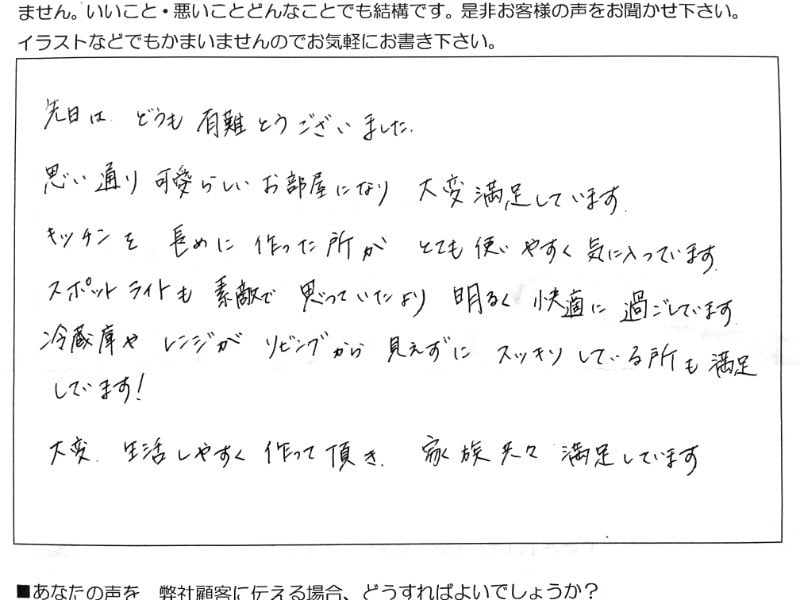 ません。いいこと・悪いことどんなことでも結構です。是非お客様の声をお聞かせ下さい。
イラストなどでもかまいませんのでお気軽にお書き下さい。
先日は どうも 有難とうございました.
思い通り 可愛らしい お部屋になり 大変満足しています.
キッチンを 長めに 作った所が とても 使いやすく 気に入っています.
スポットライトも 素敵で 思っていたより 明るく 快適に 過ごしています.
冷蔵庫や レンジが リビングから 見えずに スッキリしている所も満足
しています!
大変. 生活しやすく 作って頂き. 家族共々 満足しています
■あなたの声を 弊社顧客に伝える場合、どうすればよいでしょうか?